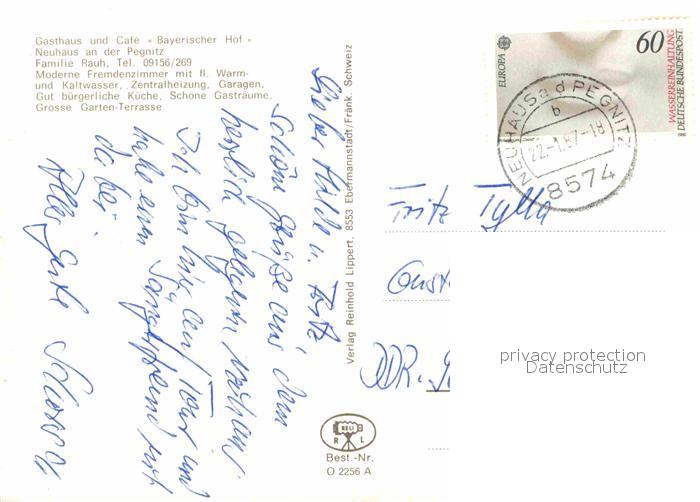 Gasthaus und Café « Bayerischer Hof »
Neuhaus an der Pegnitz
Familie Rauh, Tel. 09156/269
Moderne Fremdenzimmer mit fl. Warm-
und Kaltwasser, Zentralheizung, Garagen,
Gut bürgerliche Küche, Schöne Gasträume,
Grosse Garten-Terrasse.
Lieber u. Fritz
Schöne Grüße aus dem
herzlich gelegenen
Ich bin hier auf Tour und
habe einen mit
dabei
Alles Gute
Verlag Reinhold Lippert, 8553 Ebermannstadt/Fränk. Schweiz
RELI
R L
Best.-Nr.
O 2256 A
EUROPA
60
WASSERREINHALTUNG
DEUTSCHE BUNDESPOST
NEUHAUS a d PEGNITZ
b
22.-1.87-18
8574
Fritz Tylla
DDR.
privacy protection
Datenschutz